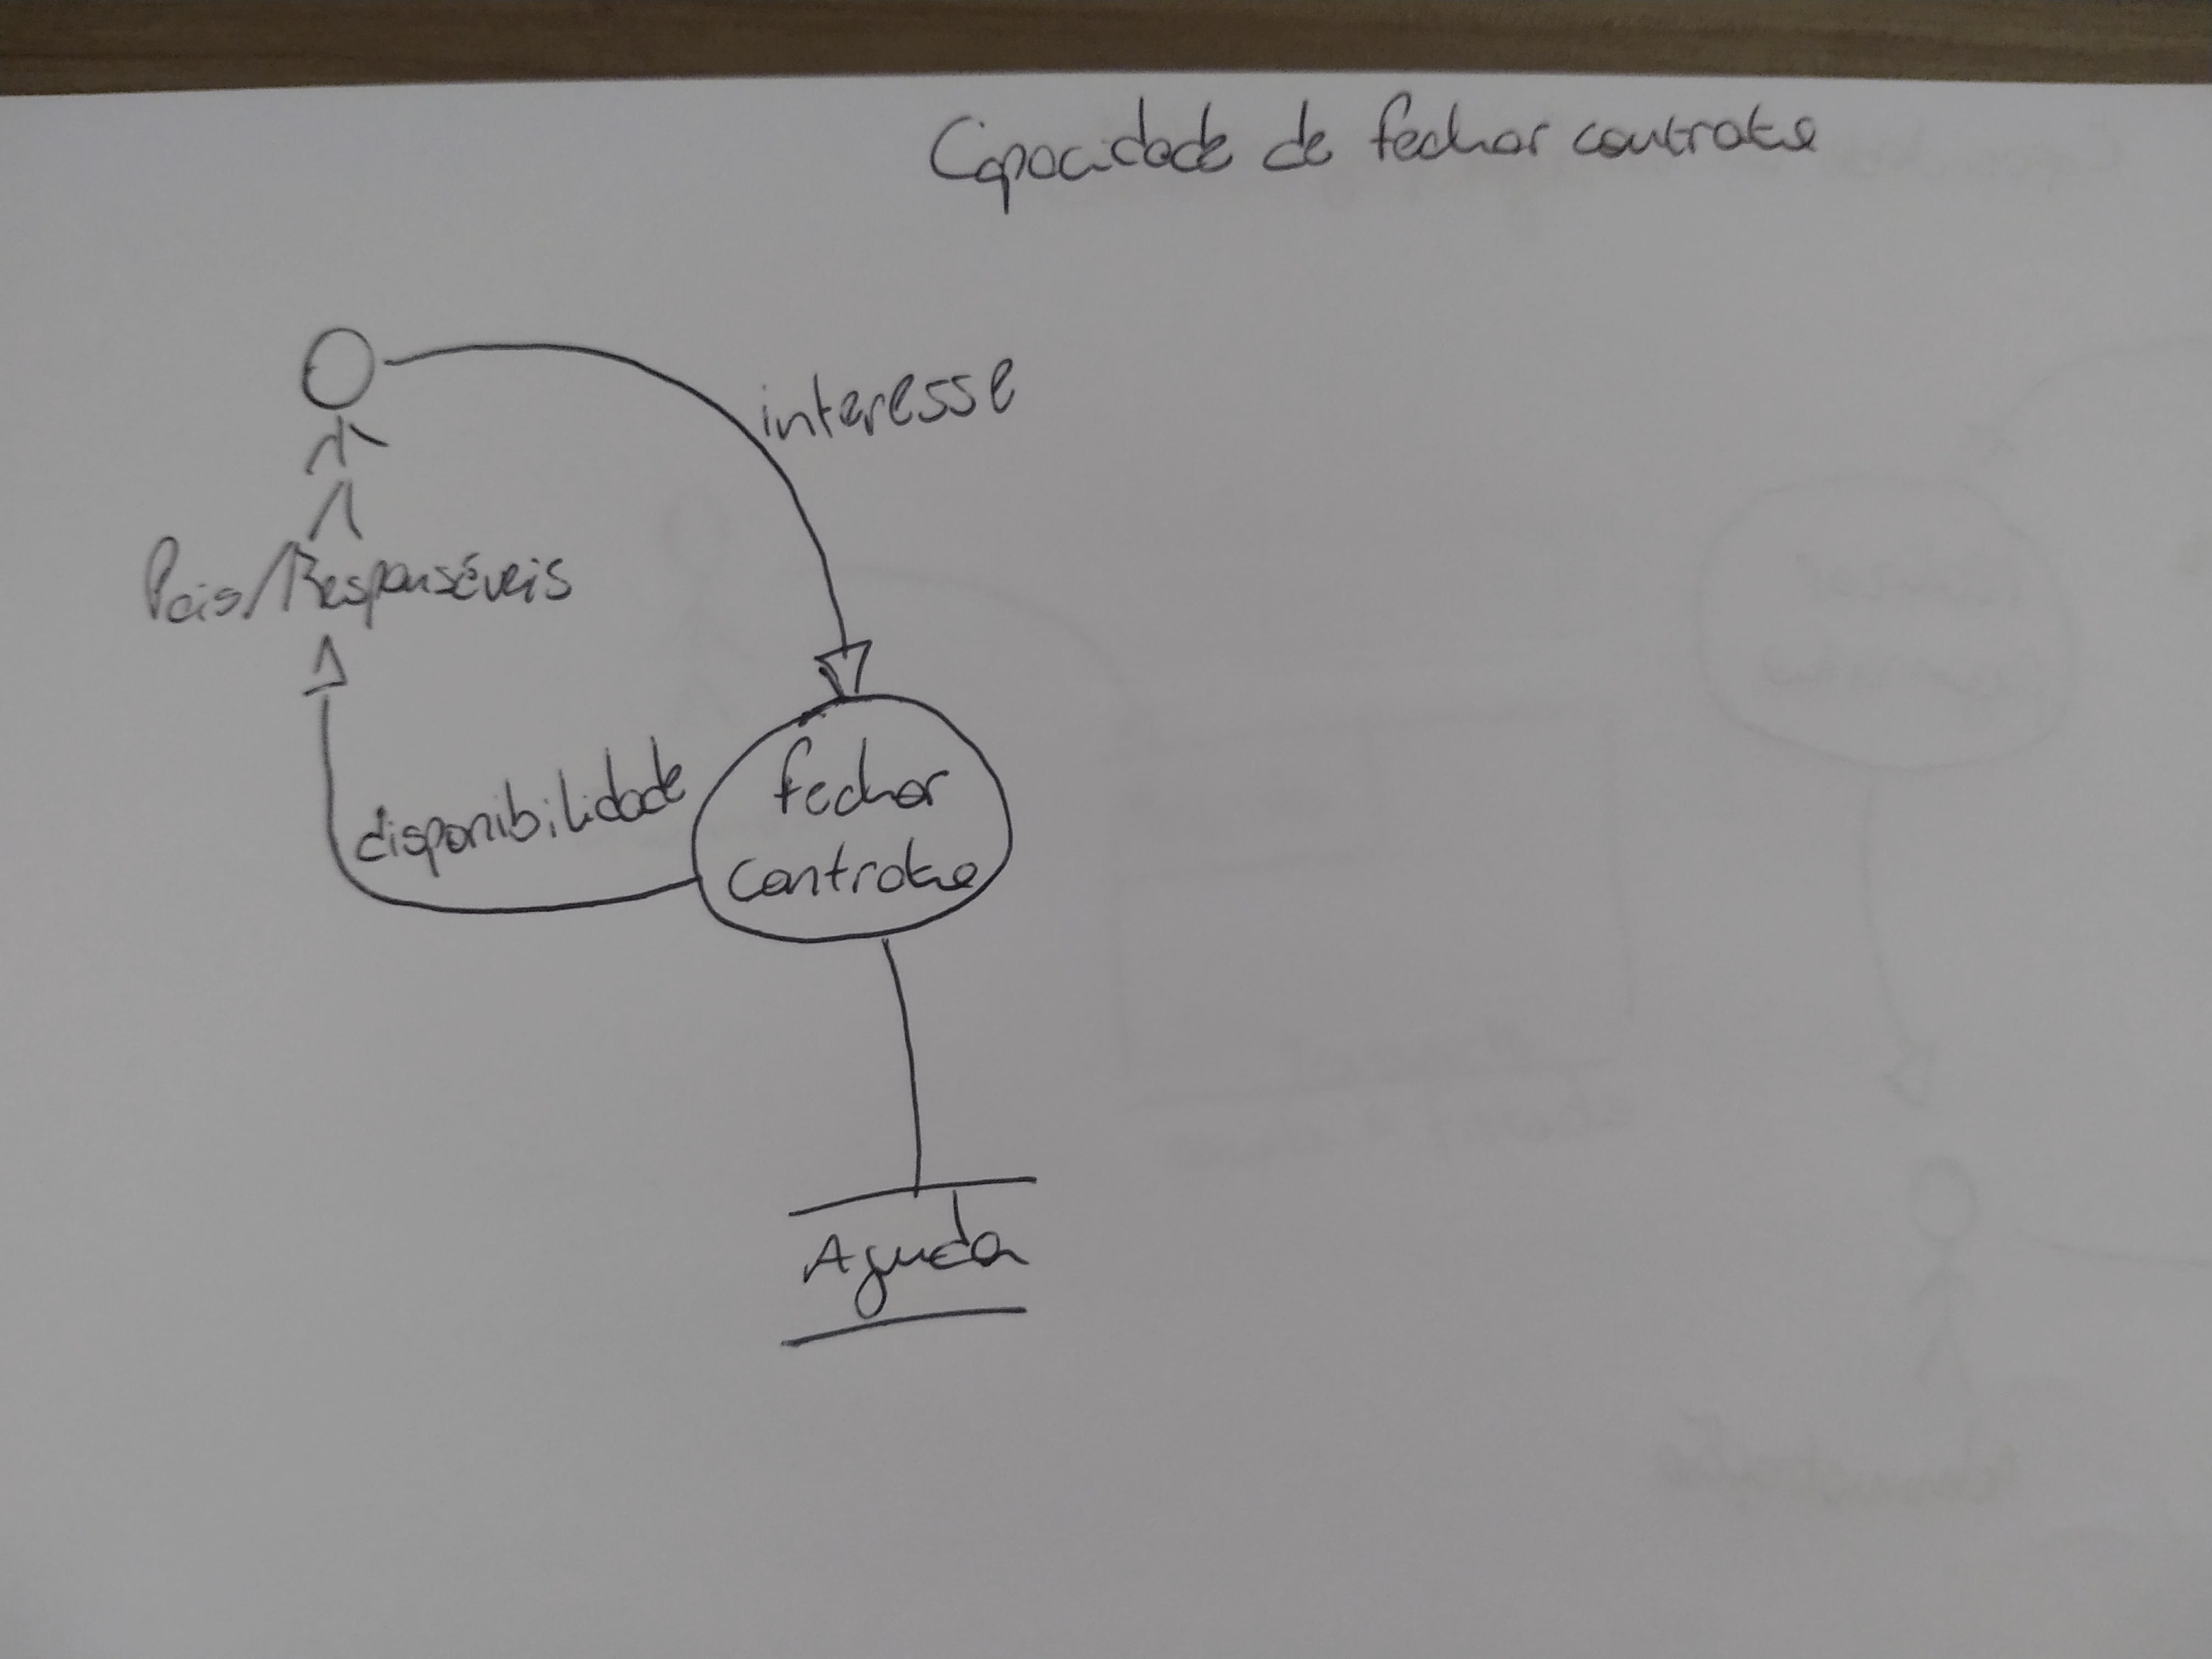 Capacidade de fechar contrato
interesse
Pais/Responsáveis
disponibilidade
fechar
contrato
Agenda